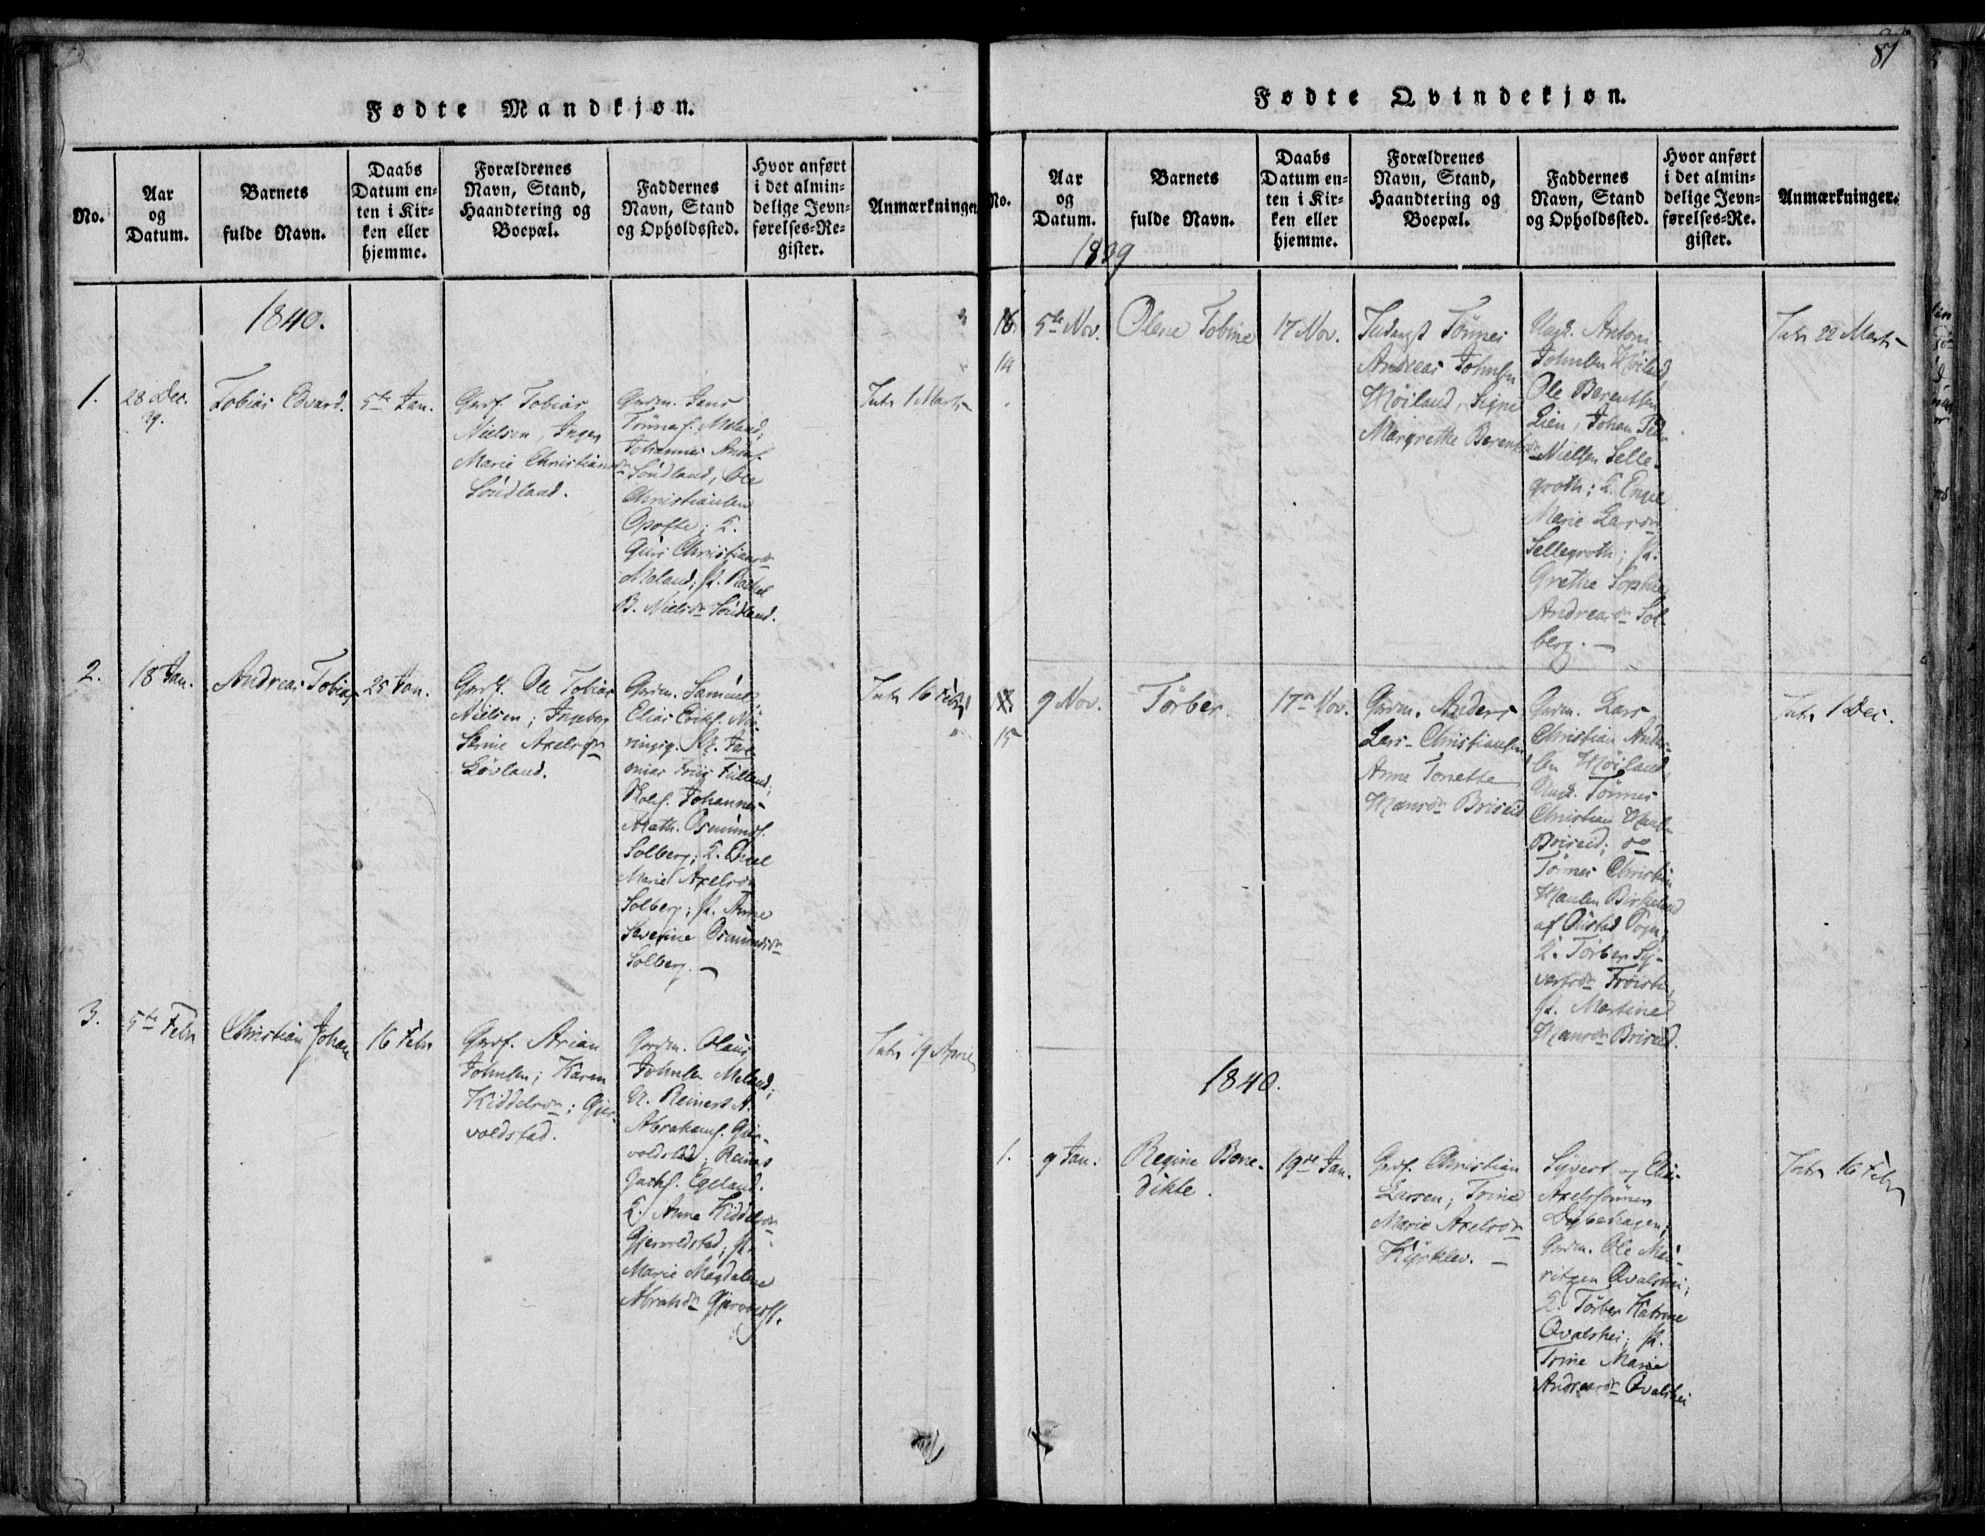 Fødte Mandkjøn.
No.
Aar
og
Datum.
Barnets
fulde Navn.
Daabs
Datum en-
ten i Kir-
ken eller
hjemme.
Forældrenes
Navn, Stand,
Haandtering og
Boepæl.
Faddernes
Navn, Stand
og Opholdssted.
Hvor anført
i det almin-
delige Jevn-
førelses-Re-
gister.
Anmærkninger
1840.
1.
28 Dec.
39.
Tobias Edvard.
5te Jan.
Gmf. Tobias
Nielsen, Inger
Marie Christians
Söudland.
Gaardm. Jens
Tönnes. Meland;
Johannes
Söudland, Ole
Christiansen
Opofte; F.
Guri Christiansdr
Meland; P. Rachel
B. Nielsdr Söudland.
Intr. 1 Marts
2.
18 Jan.
Andreas Tobias
25 Jan.
Gmf. Ole Tobias
Nielsen; Ingeborg
Serine Axelsdr
Lövland.
Gaardm. Samuel
Elias Eriks.
Holf. Johannes
Math. Osmunds.
Solberg; F. Engel
Marie Axelsdr
Solberg; P. Anne
Severine Osmundsdr
Solberg. —
Intr. 16 Febr
3.
5te Febr
Christian Johan
16 Febr
Gmf. Arian
Johnsen; Karen
Kiddelsdr; Gjer-
voldstad.
Gaardm. Olaus
Johnsen Meland;
U. Reinert A.
Abrahams. Gjer-
voldstad; Reiner
Jachs. Egeland.
F. Anne Kiddelsdr
Gjervoldstad, P.
Marie Magdalene
Abrahdr Gjervoldst.
Intr. 19 April
87
Fødte Qvindekjøn.
No.
Aar
og
Datum.
Barnets
fulde Navn.
Daabs
Datum en-
ten i Kir-
ken eller
hjemme.
Forældrenes
Navn, Stand,
Haandtering og
Boepæl.
Faddernes
Navn, Stand
og Opholdssted.
Hvor anført
i det almin-
delige Jevn-
førelses-Re-
gister.
Anmærkninger.
1839
16
14
5te Nov.
Olene Tobine
17 Nov.
Inderst Tönnes
Andreas Johnsen
Höiland, Signe
Margrethe Berentsdr
Ungk. Antoni
Johnsen Höiland,
Ole Berentsen
Lien, Johan Peder
Nielsen Selle-
groth; F. Engel
Marie Larsdr
Sellegroth; P.
Grethe Sophie
Andreasdr Sol-
berg. —
Intr. 22 Marts
15
9 Nov.
Törber.
17de Nov.
Gaardm. Anders
Lars Christiansen
Anne Tonette
Hansdr Briseid
Gaardm. Lars
Christian Ander-
sen Höiland,
Ungk. Tönnes
Christian Hansen
Briseid; og
Tönnes Christian
Hansen Birkeland
af Öustad Sogn;
F. Törber Sy-
vertsdr Tröisti
P. Martine
Hansdr Briseid.
Intr. 1 Dec.
1840.
1.
9 Jan.
Regine Bene-
dikte.
19de Jan.
Gmf. Christian
Larsen; Trine
Marie Axelsdr
Kyrklev. —
Syvert og Elias
Axelssönner
Dybeshagen,
Gaardm. Ole Mau-
ritzen Qvalshei;
F. Törber Katrine
Qvalshei; P.
Trine Marie
Andreasdr Qvalshei
Intr. 16 Febr